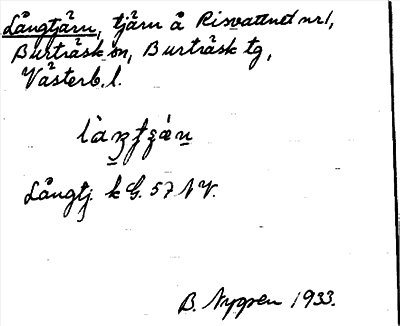 Långtjärn, tjärn å Risvattnet nr 1,
Burträsk sn, Burträsk tg,
Västerb. l.
Långtj. k G. 57 NV.
B. Nygren 1933.